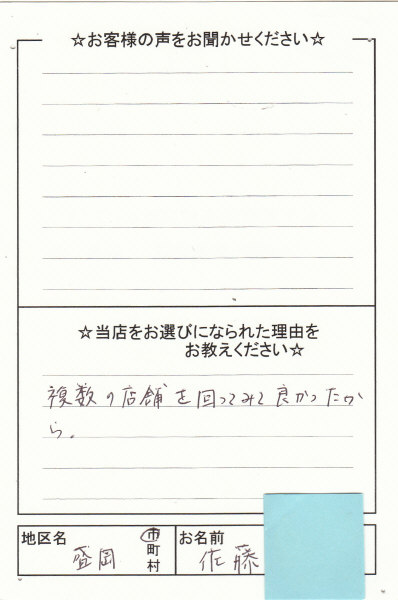 ☆お客様の声をお聞かせください☆
☆当店をお選びになられた理由を
お教えください☆
複数の店舗を回ってみて良かったか
ら。
地区名
盛岡
市
町
村
お名前
佐藤